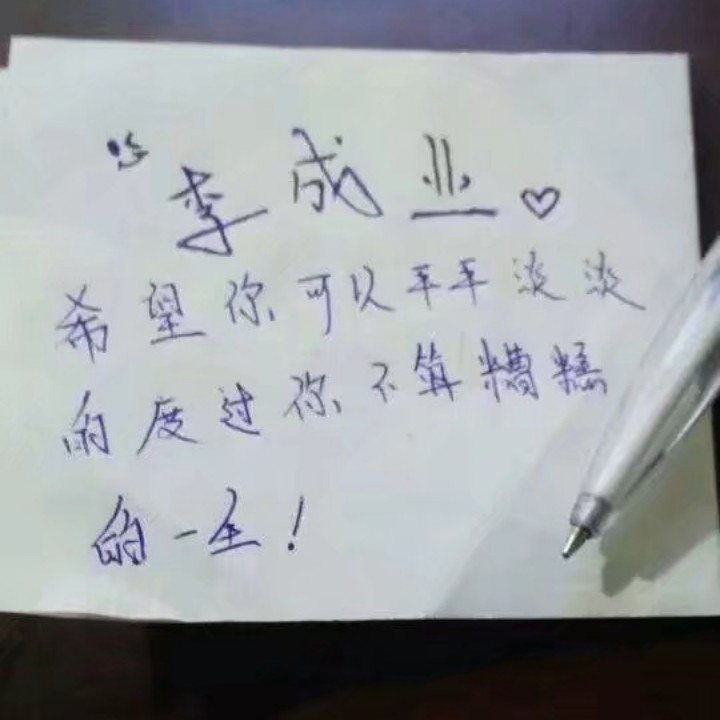 李成业♡
希望你可以平平淡淡
的度过你不算糟糕
的一生!